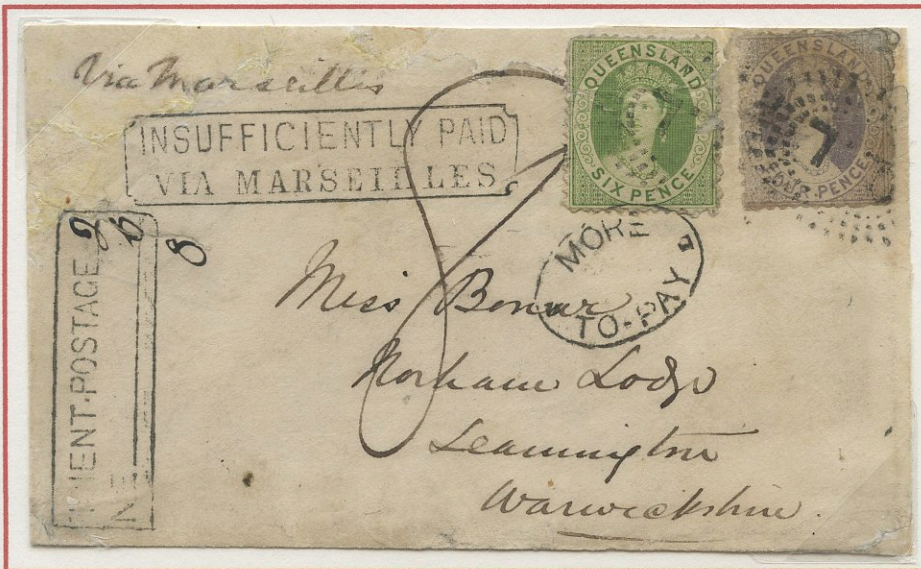 Via Marseilles
INSUFFICIENTLY PAID
VIA MARSEILLES
QUEENSLAND
SIX PENCE
QUEENSLAND
FOUR PENCE
8
MORE
TO-PAY
IENT-POSTAGE
8
Miss Bonar
Norham Lodge
Leamington
Warwickshire.